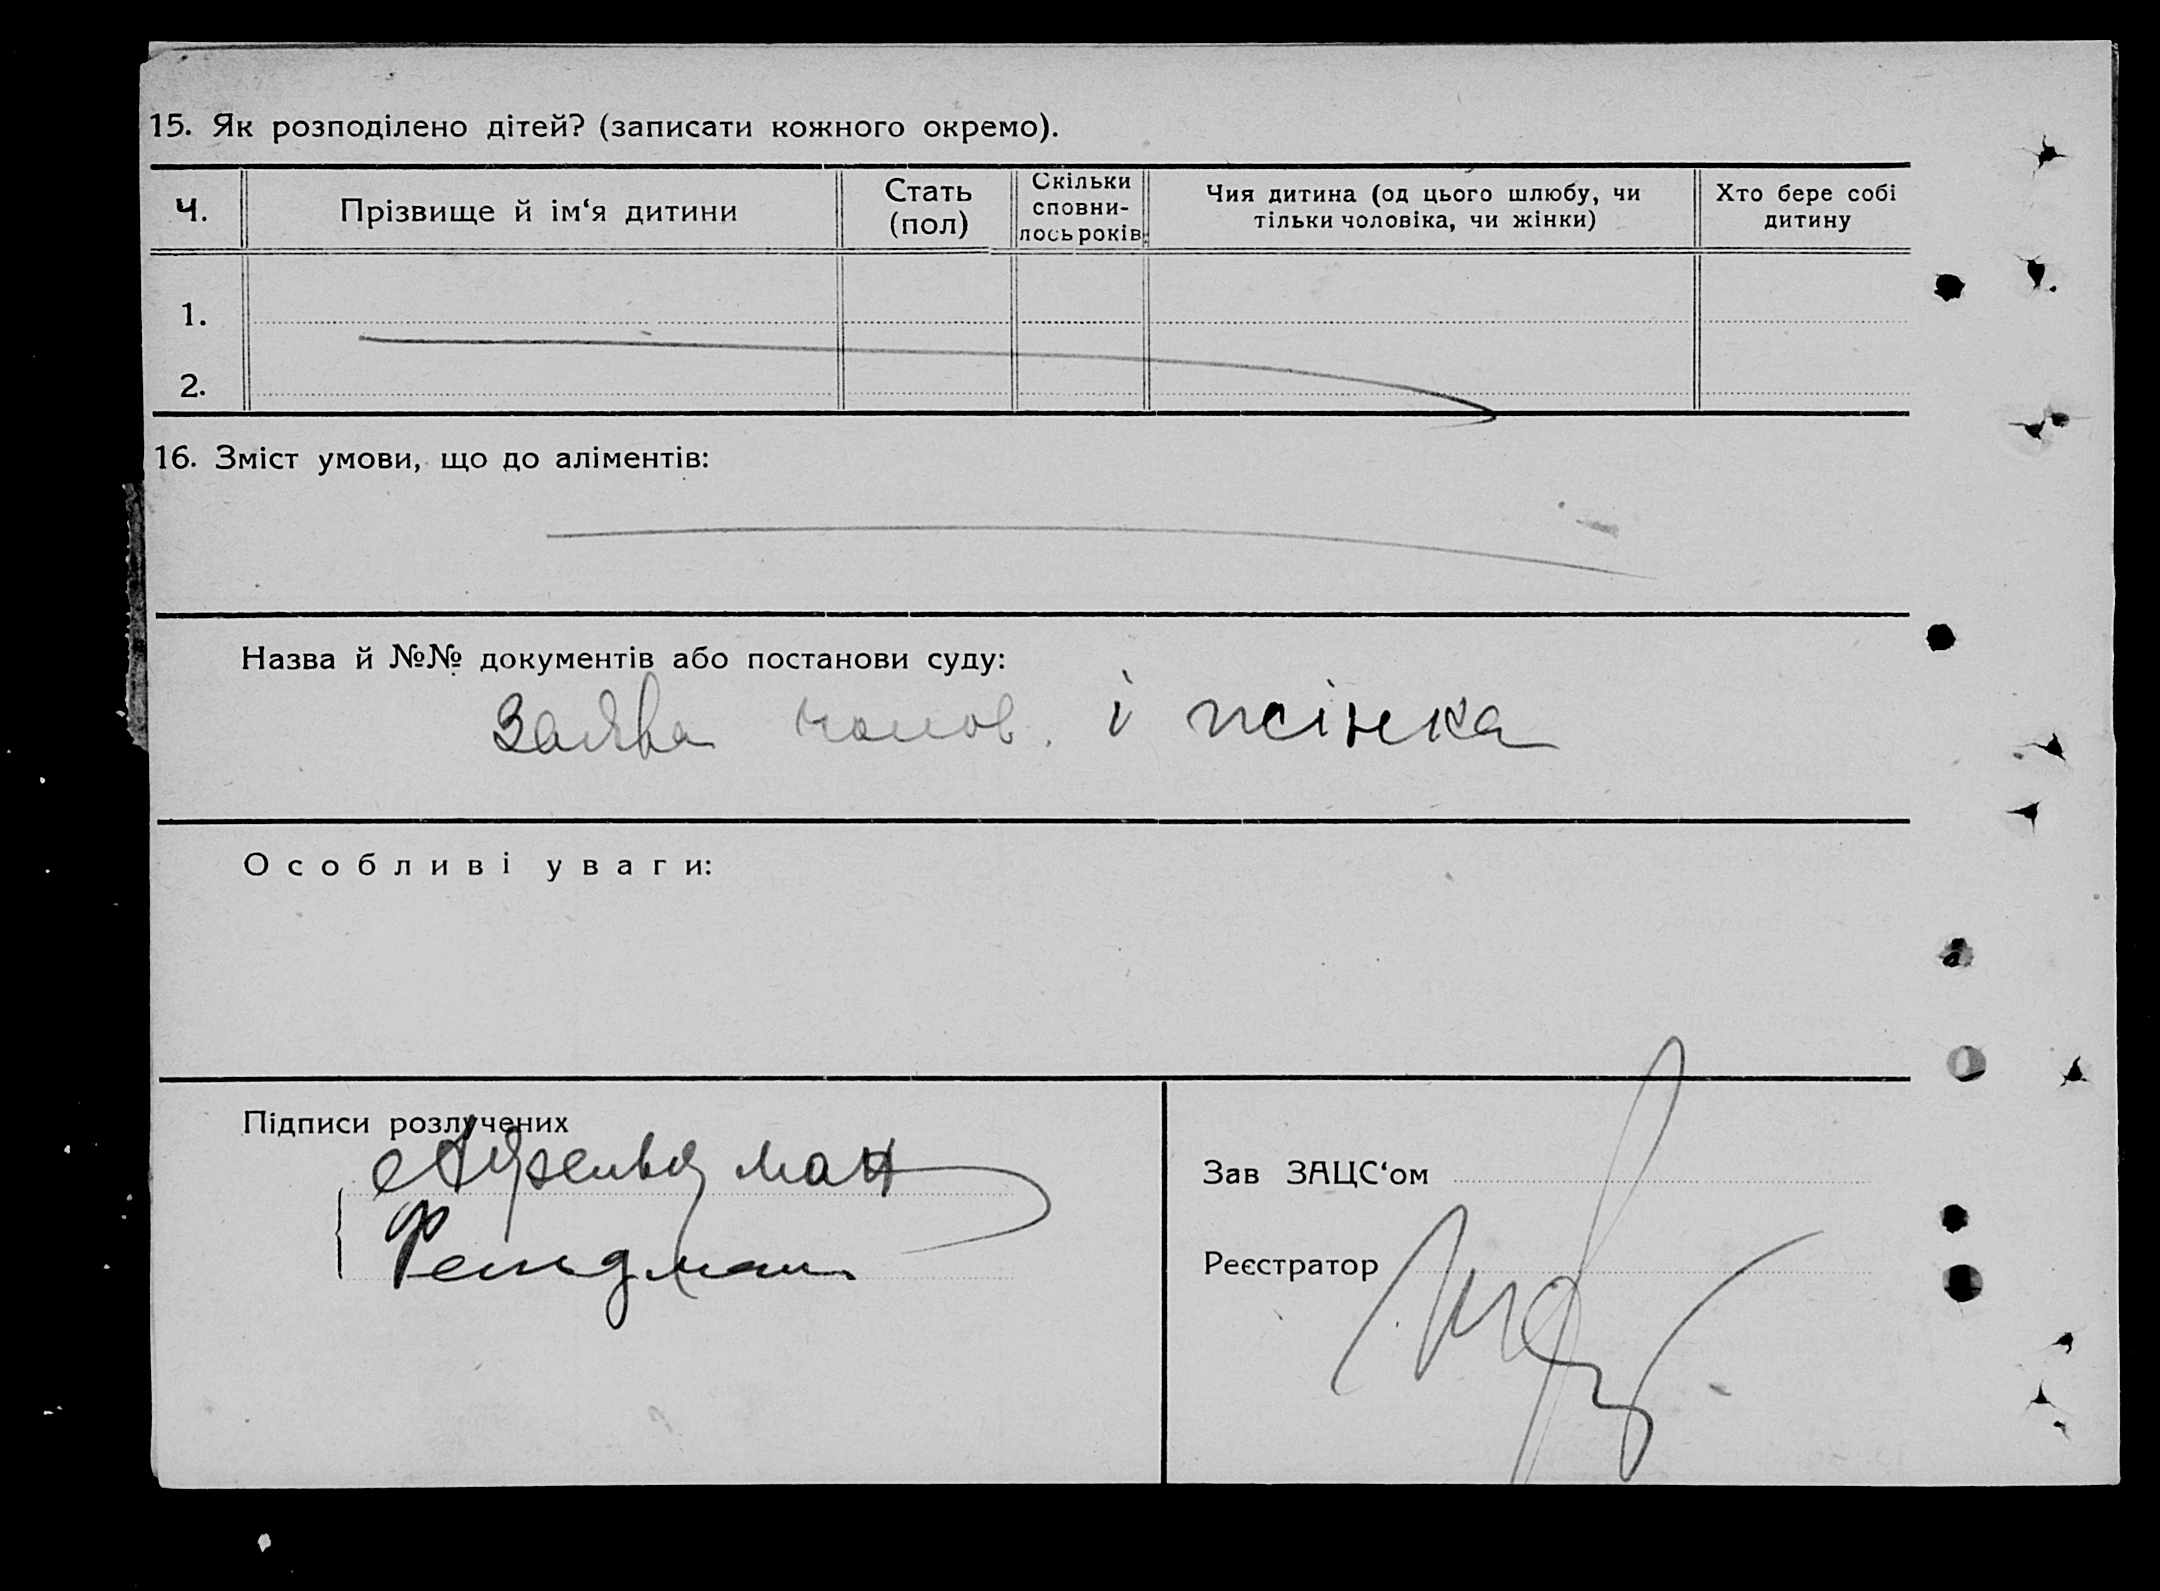 15. Як розподілено дітей? (записати кожного окремо).
Ч.
Прізвище й ім‘я дитини
Стать
(пол)
Скільки
сповни-
лось років
Чия дитина (од цього шлюбу, чи
тільки чоловіка, чи жінки)
Хто бере собі
дитину
1.
2.
16. Зміст умови, що до аліментів:
Назва й №№ документів або постанови суду:
Заява чолов. і жінка
Особливі уваги:
Підписи розлучених
Фельдман
Зав ЗАЦС‘ом
Реєстратор